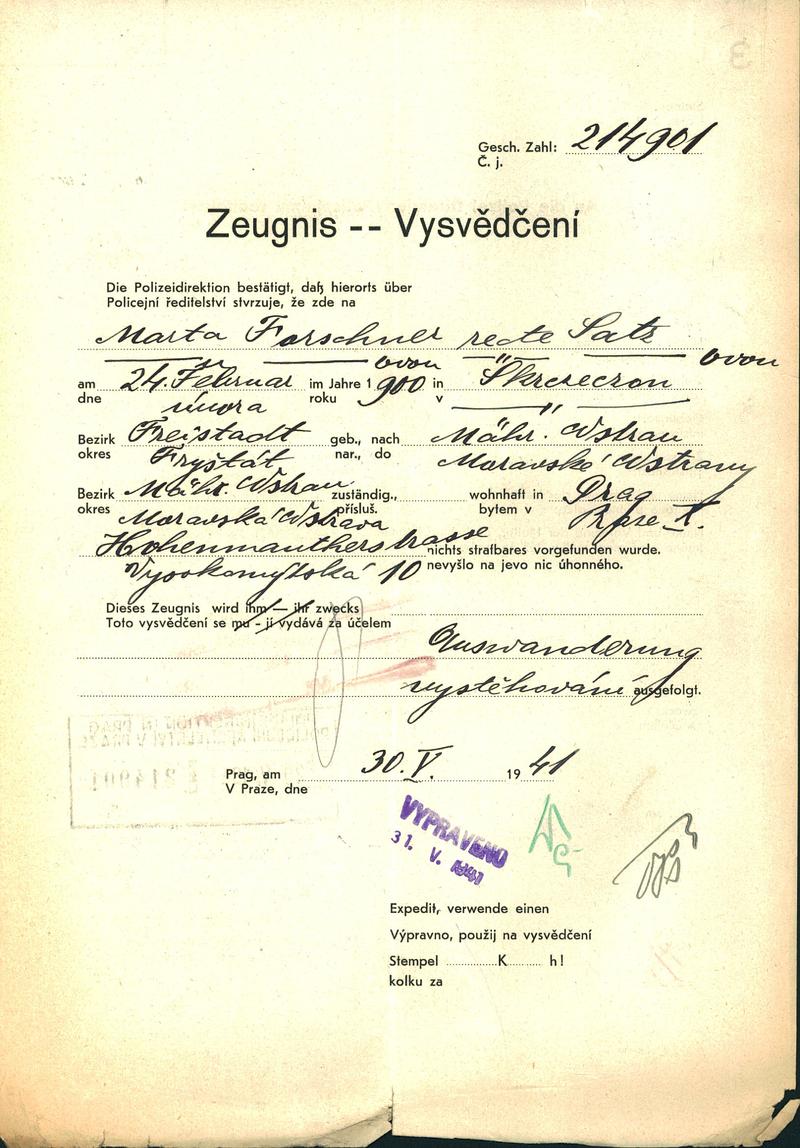 Gesch. Zahl: 214901
Č. j.
Zeugnis -- Vysvědčení
Die Polizeidirektion bestätigt, daß hierorts über
Policejní ředitelství stvrzuje, že zde na
Marta Forschner recte Satz
ovou ovou
am 24. Februar im Jahre 1900 in Skrzeczon
dne února roku v
Bezirk Freistadt geb., nach Mähr. Ostrau
okres Fryštát nar., do Moravské Ostravy
Bezirk Mähr. Ostrau zuständig., wohnhaft in Prag
okres Moravská Ostrava přísluš. bytem v Praze X.
Hohenmautherstrasse nichts strafbares vorgefunden wurde.
Vysokomýtská 10 nevyšlo na jevo nic úhonného.
Dieses Zeugnis wird ihm — ihr zwecks
Toto vysvědčení se mu - jí vydává za účelem
Auswanderung
vystěhování ausgefolgt.
Prag, am 30. V. 1941
V Praze, dne
VYPRAVENO
31. V. 1941
Expedit, verwende einen
Výpravno, použij na vysvědčení
Stempel K h!
kolku za